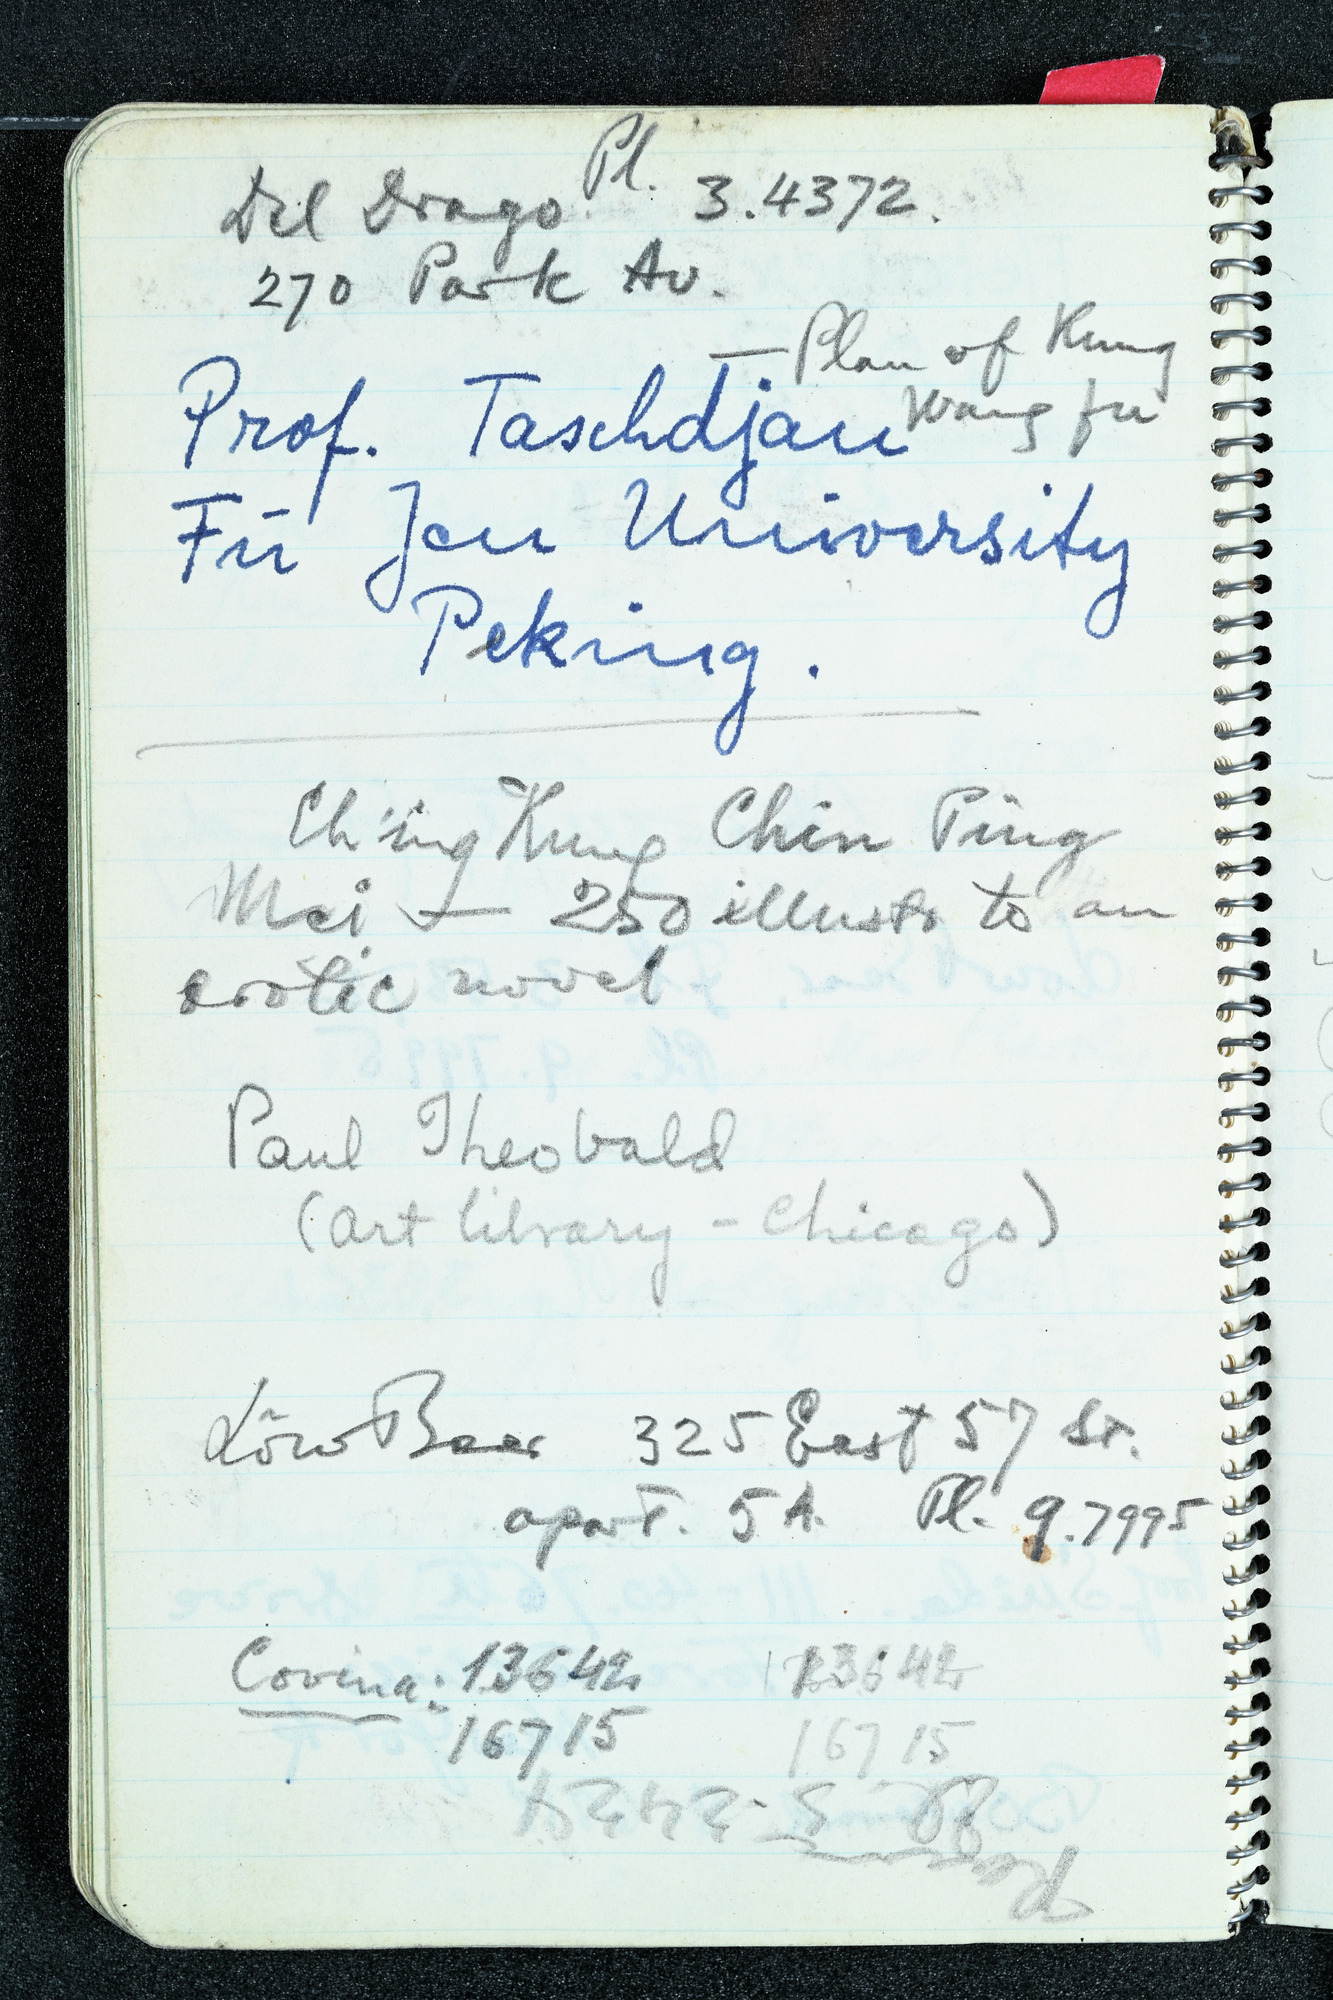 Del Drago Pl. 3.4372.
270 Park Av.
— Plan of Kung
Wang fu
Prof. Taschdjan
Fu Jen University
Peking.
Ch'ing Kung Chin Ping
Mei — 250 illustr to an
erotic novel
Paul Theobald
(art library - Chicago)
Löw Beer 325 East 57 St.
apart. 5 A. Pl. 9.7995
Covina: 13642 13642
16715 16715